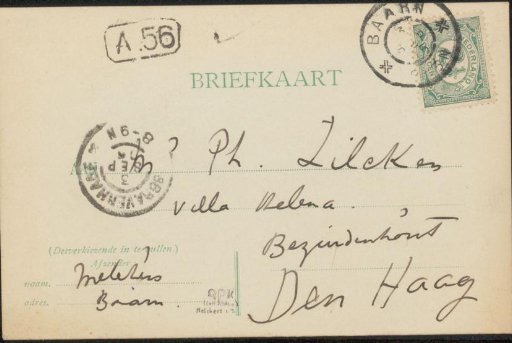 A.56
BAARN
NEDERLAND
BRIEFKAART
'S GRAVENHAGE
8-9N
3 SEP
Ph. Zilcken
Villa Helena
Bezuidenhout
Den Haag
(Desverkiezende in te vullen)
Afzender
naam.
adres. Baarn
RPK